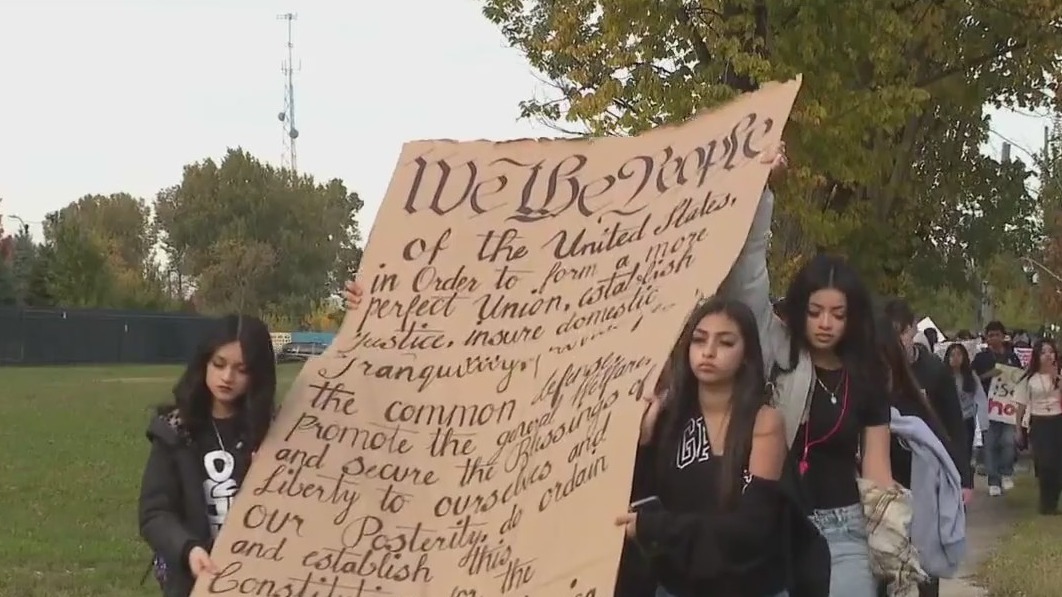 We The People
of the United States,
in Order to form a more
perfect Union, establish
Justice, insure domestic
Tranquility,
the common defense,
Promote the general Welfare,
and secure the Blessings of
Liberty to ourselves and
our Posterity, do ordain
and establish this
Constituti for the